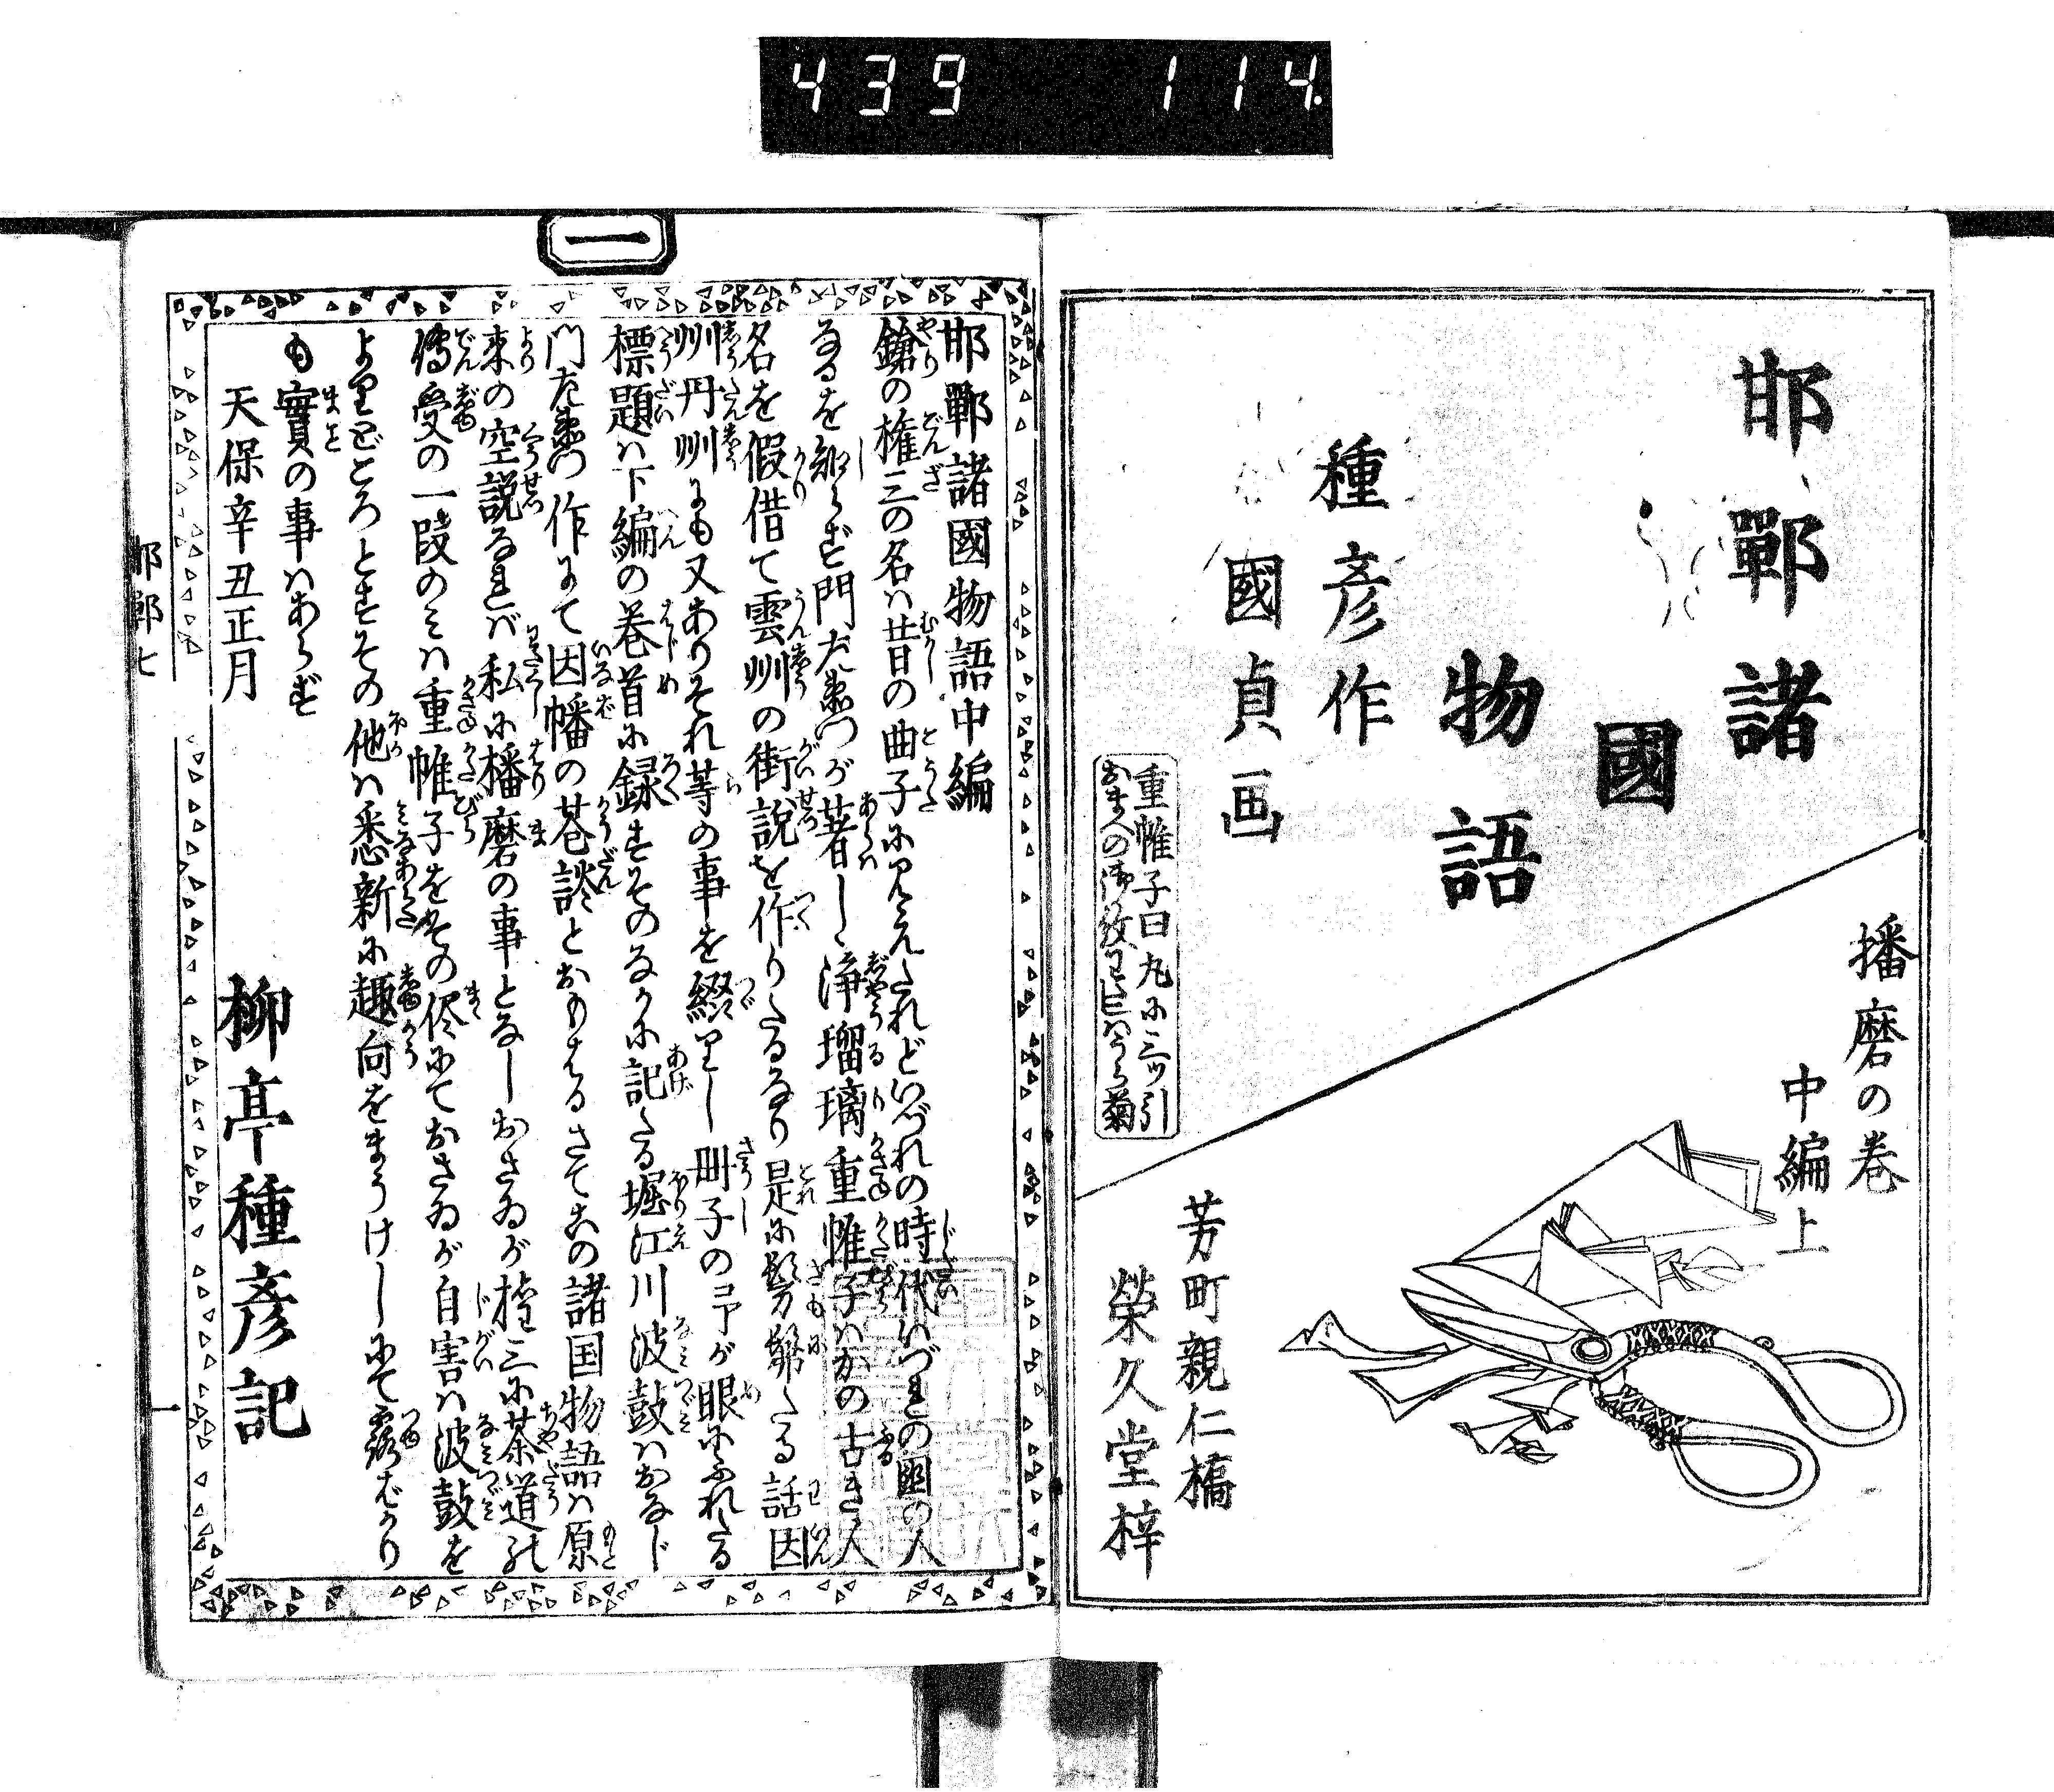 439 114.
邯鄲諸
國
物語
種彦作
國貞画
重帷子曰丸に三ツ引
播磨の巻
中編上
芳町親仁橋
榮久堂梓
一
邯鄲諸國物語中編
鎗の権三の名ハ昔の曲子に見えたれどいづれの時代いづれの国の人
なるを知らず門左衞門が著しゝ浄瑠璃重帷子ハかの古き人
名を假借て雲州の街説を作りたるなり是に髣髴たる話因
州丹州にも又ありそれ等の事を綴りし冊子の予が眼にふれたる
標題ハ下編の巻首に録すそのなかに記たる堀江川波鼓ハおなじ
門左衞門作にて因幡の巷談とおもはるさてこの諸国物語ハ原
来の空説なれバ私に播磨の事となしおさゐが権三に茶道の
傳受の一段のミハ重帷子をその侭にておさゐが自害ハ波鼓を
よりどころとすその他ハ悉新に趣向をまうけしにて露ばかり
も實の事ハあらず
天保辛丑正月
柳亭種彦記
邯鄲七